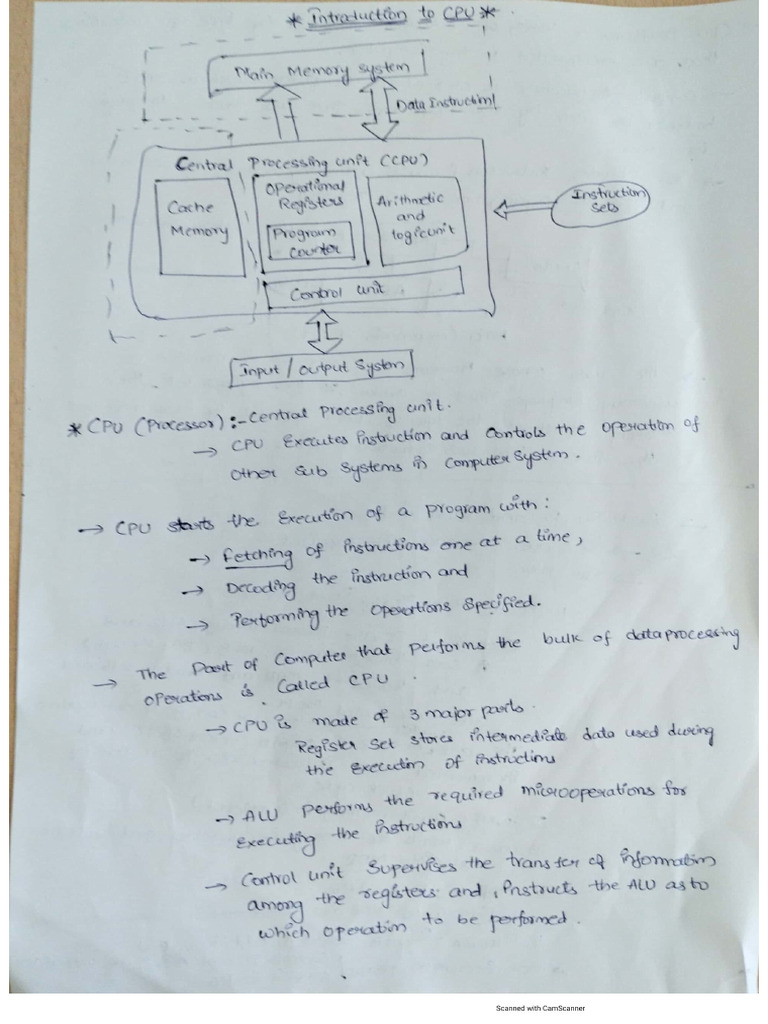 * Introduction to CPU *
Main Memory system
Data Instruction
Central Processing unit (CPU)
Cache
Memory
Operational
Registers
Program
Counter
Arithmetic
and
logic unit
Instruction
Sets
Control unit
Input / output System
* CPU (Processor) :- Central Processing unit.
→ CPU Executes instruction and Controls the operation of
other Sub Systems in Computer System.
→ CPU starts the Execution of a program with :
→ Fetching of instructions one at a time,
→ Decoding the instruction and
→ Performing the Operations Specified.
→ The Part of Computer that performs the bulk of data processing
operations is Called CPU.
→ CPU is made of 3 major parts.
Register Set stores intermediate data used during
the Execution of instructions
→ ALU performs the required microoperations for
Executing the instructions
→ Control unit Supervises the transfer of information
among the registers and, instructs the ALU as to
which operation to be performed.
Scanned with CamScanner